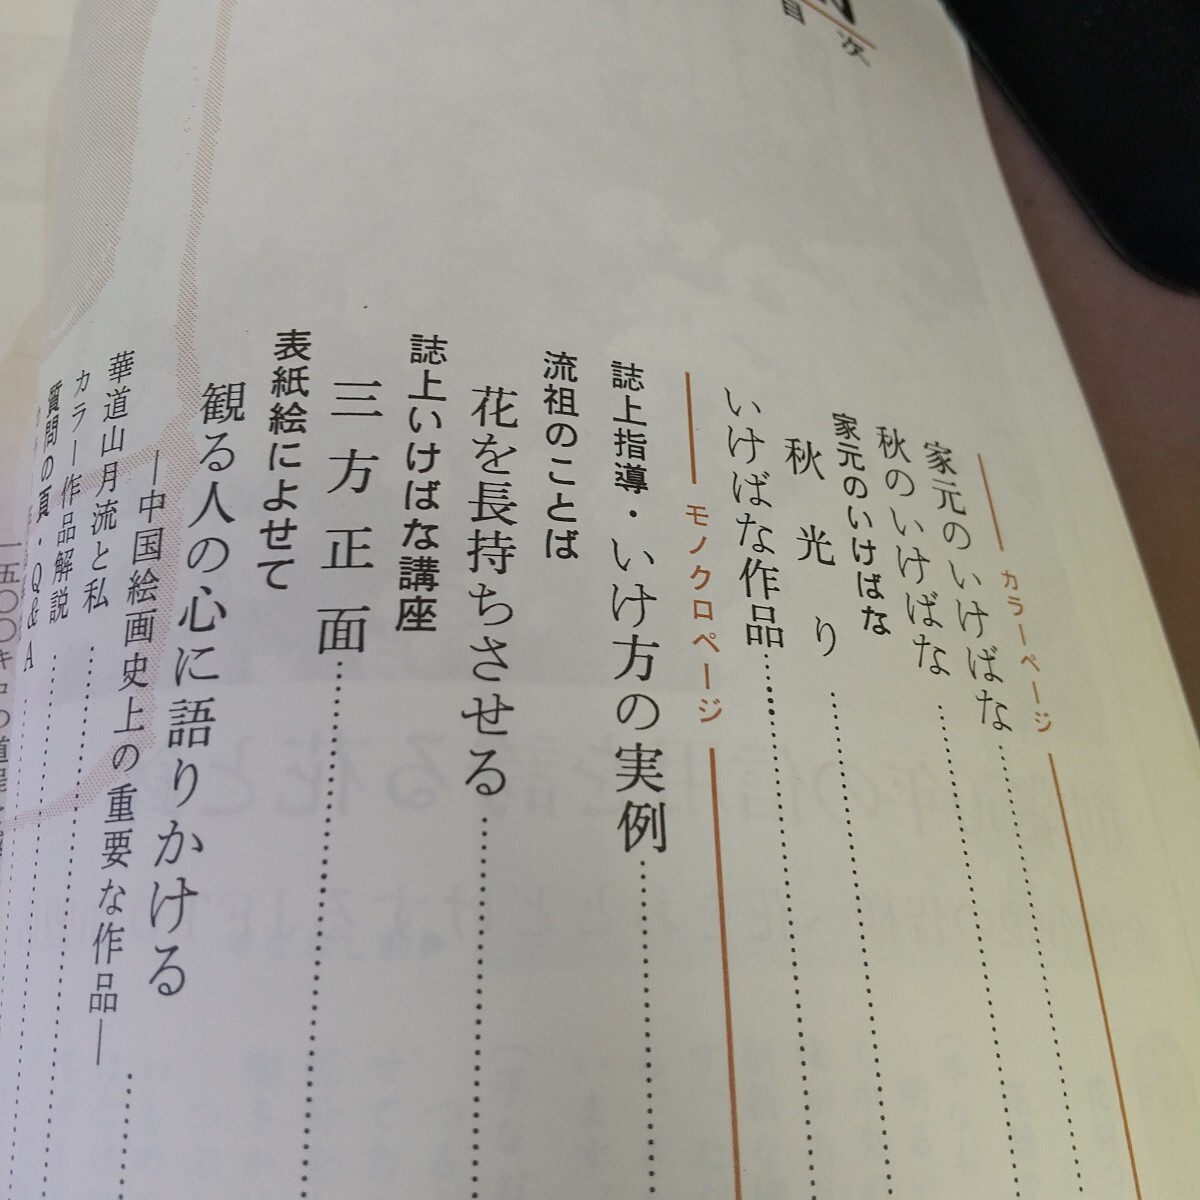 目次
カラーページ
家元のいけばな
秋のいけばな
家元のいけばな
秋光り
いけばな作品
モノクロページ
誌上指導・いけ方の実例
流祖のことば
花を長持ちさせる
誌上いけばな講座
三方正面
表紙絵によせて
観る人の心に語りかける
―中国絵画史上の重要な作品―
華道山月流と私
カラー作品解説
質問の頁・Q&A